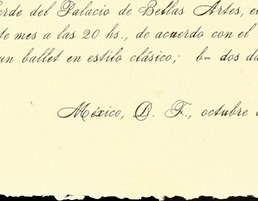 erde del Palacio de Bellas Artes, e
te mes a las 20 hs., de acuerdo con el
un ballet en estilo clásico,; b- dos da
México, D. F., octubre